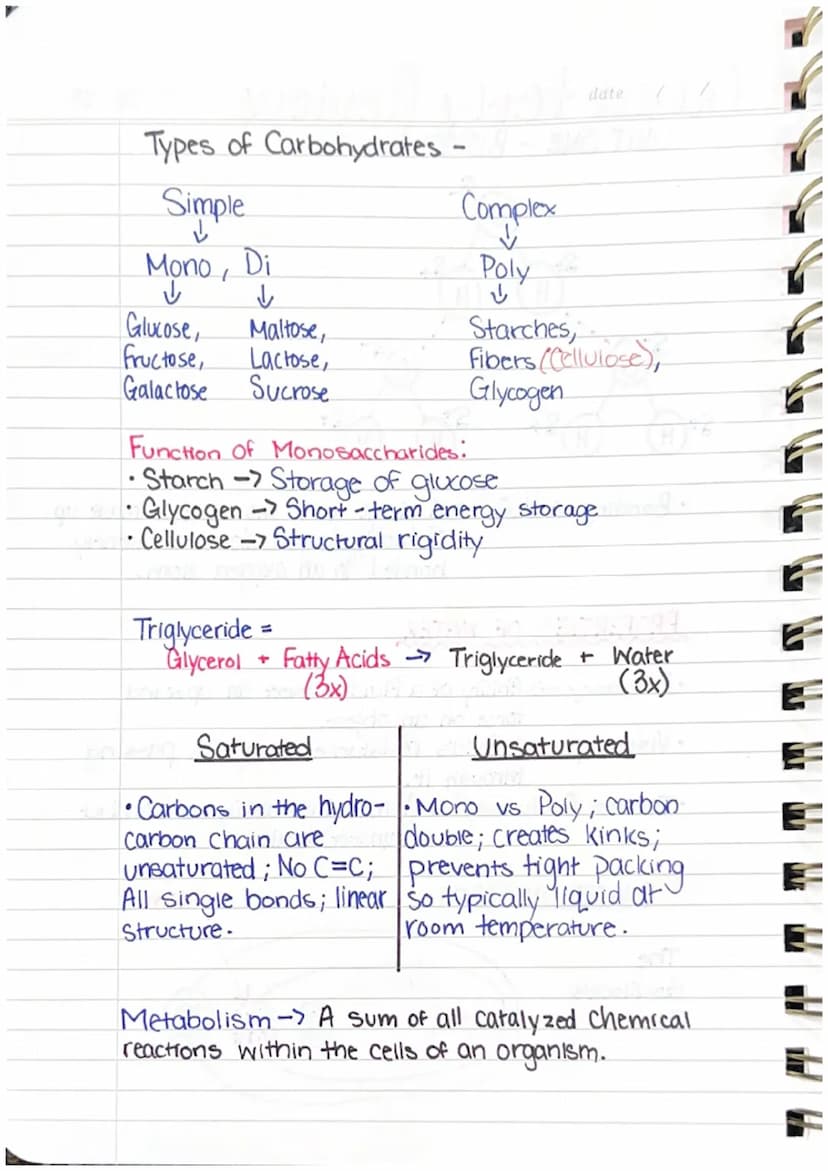 date / /
Types of Carbohydrates -
Simple Complex
↓ ↓
Mono, Di Poly
↓ ↓ ↓
Glucose, Maltose, Starches,
Fructose, Lactose, Fibers (Cellulose),
Galactose Sucrose Glycogen
Function of Monosaccharides:
· Starch -> Storage of glucose
· Glycogen -> Short-term energy storage
· Cellulose -> Structural rigidity
Triglyceride =
Glycerol + Fatty Acids -> Triglyceride + Water
(3x) (3x)
Saturated Unsaturated
• Carbons in the hydro- • Mono vs Poly; carbon
carbon chain are double; creates kinks;
unsaturated; No C=C; prevents tight packing
All single bonds; linear so typically liquid at
structure. room temperature.
Metabolism -> A sum of all catalyzed chemical
reactions within the cells of an organism.